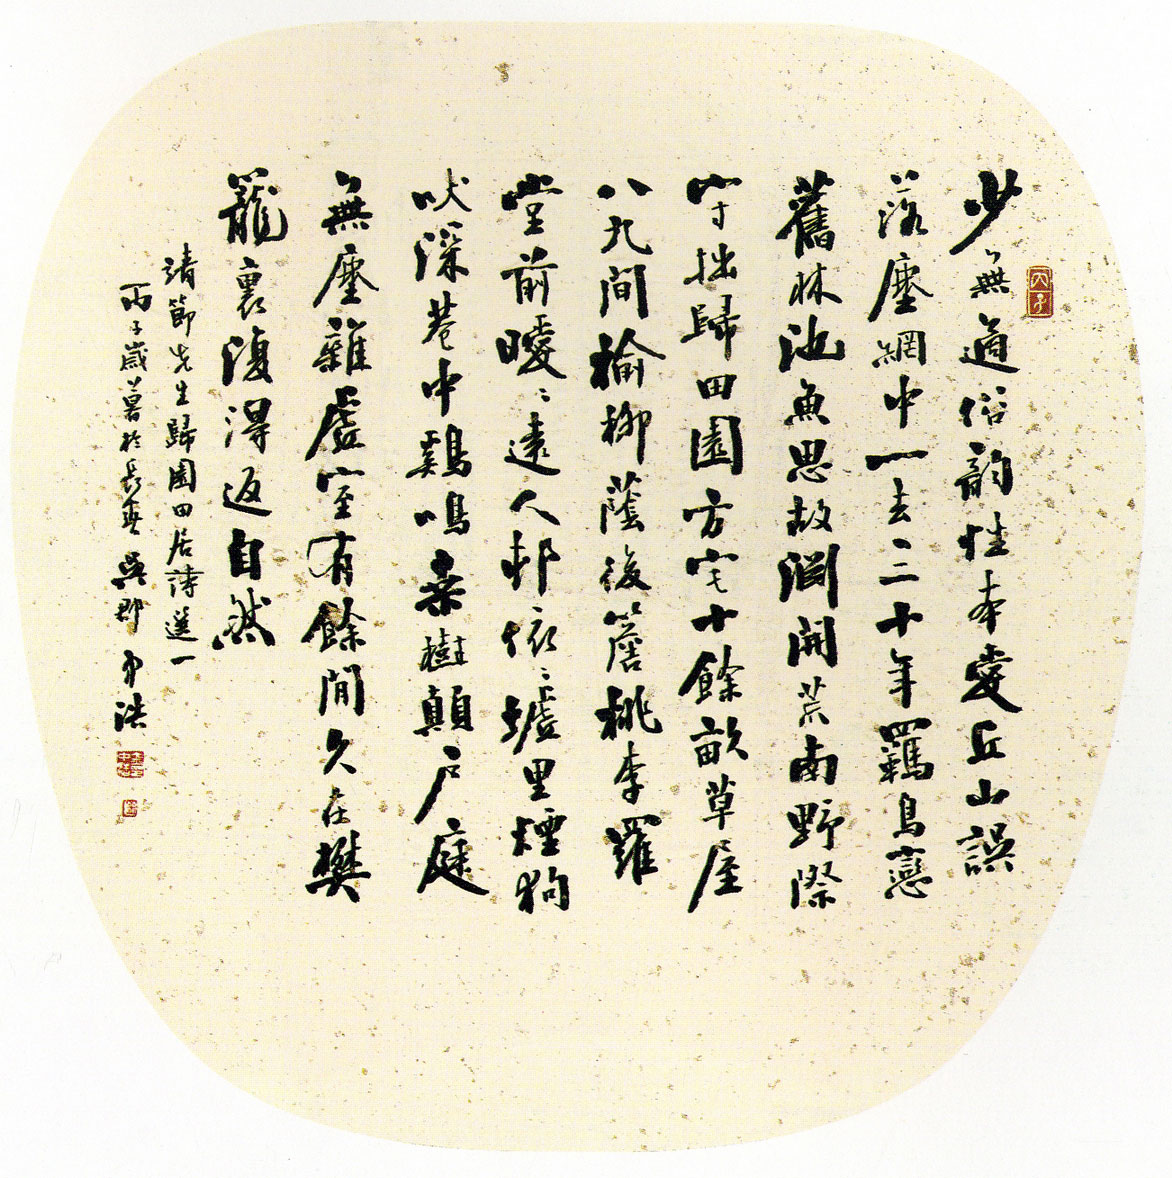 丙子
少無適俗韵性本愛丘山誤
落塵網中一去三十年羈鳥戀
舊林池魚思故淵開荒南野際
守拙歸田園方宅十餘畝草屋
八九間榆柳蔭後簷桃李羅
堂前曖〻遠人邨依〻墟里煙狗
吠深巷中鷄鳴桑樹顛戶庭
無塵雜虛室有餘閒久在樊
籠裏復得返自然
靖節先生歸園田居詩選一
丙子歲暮於長春吳郡浩